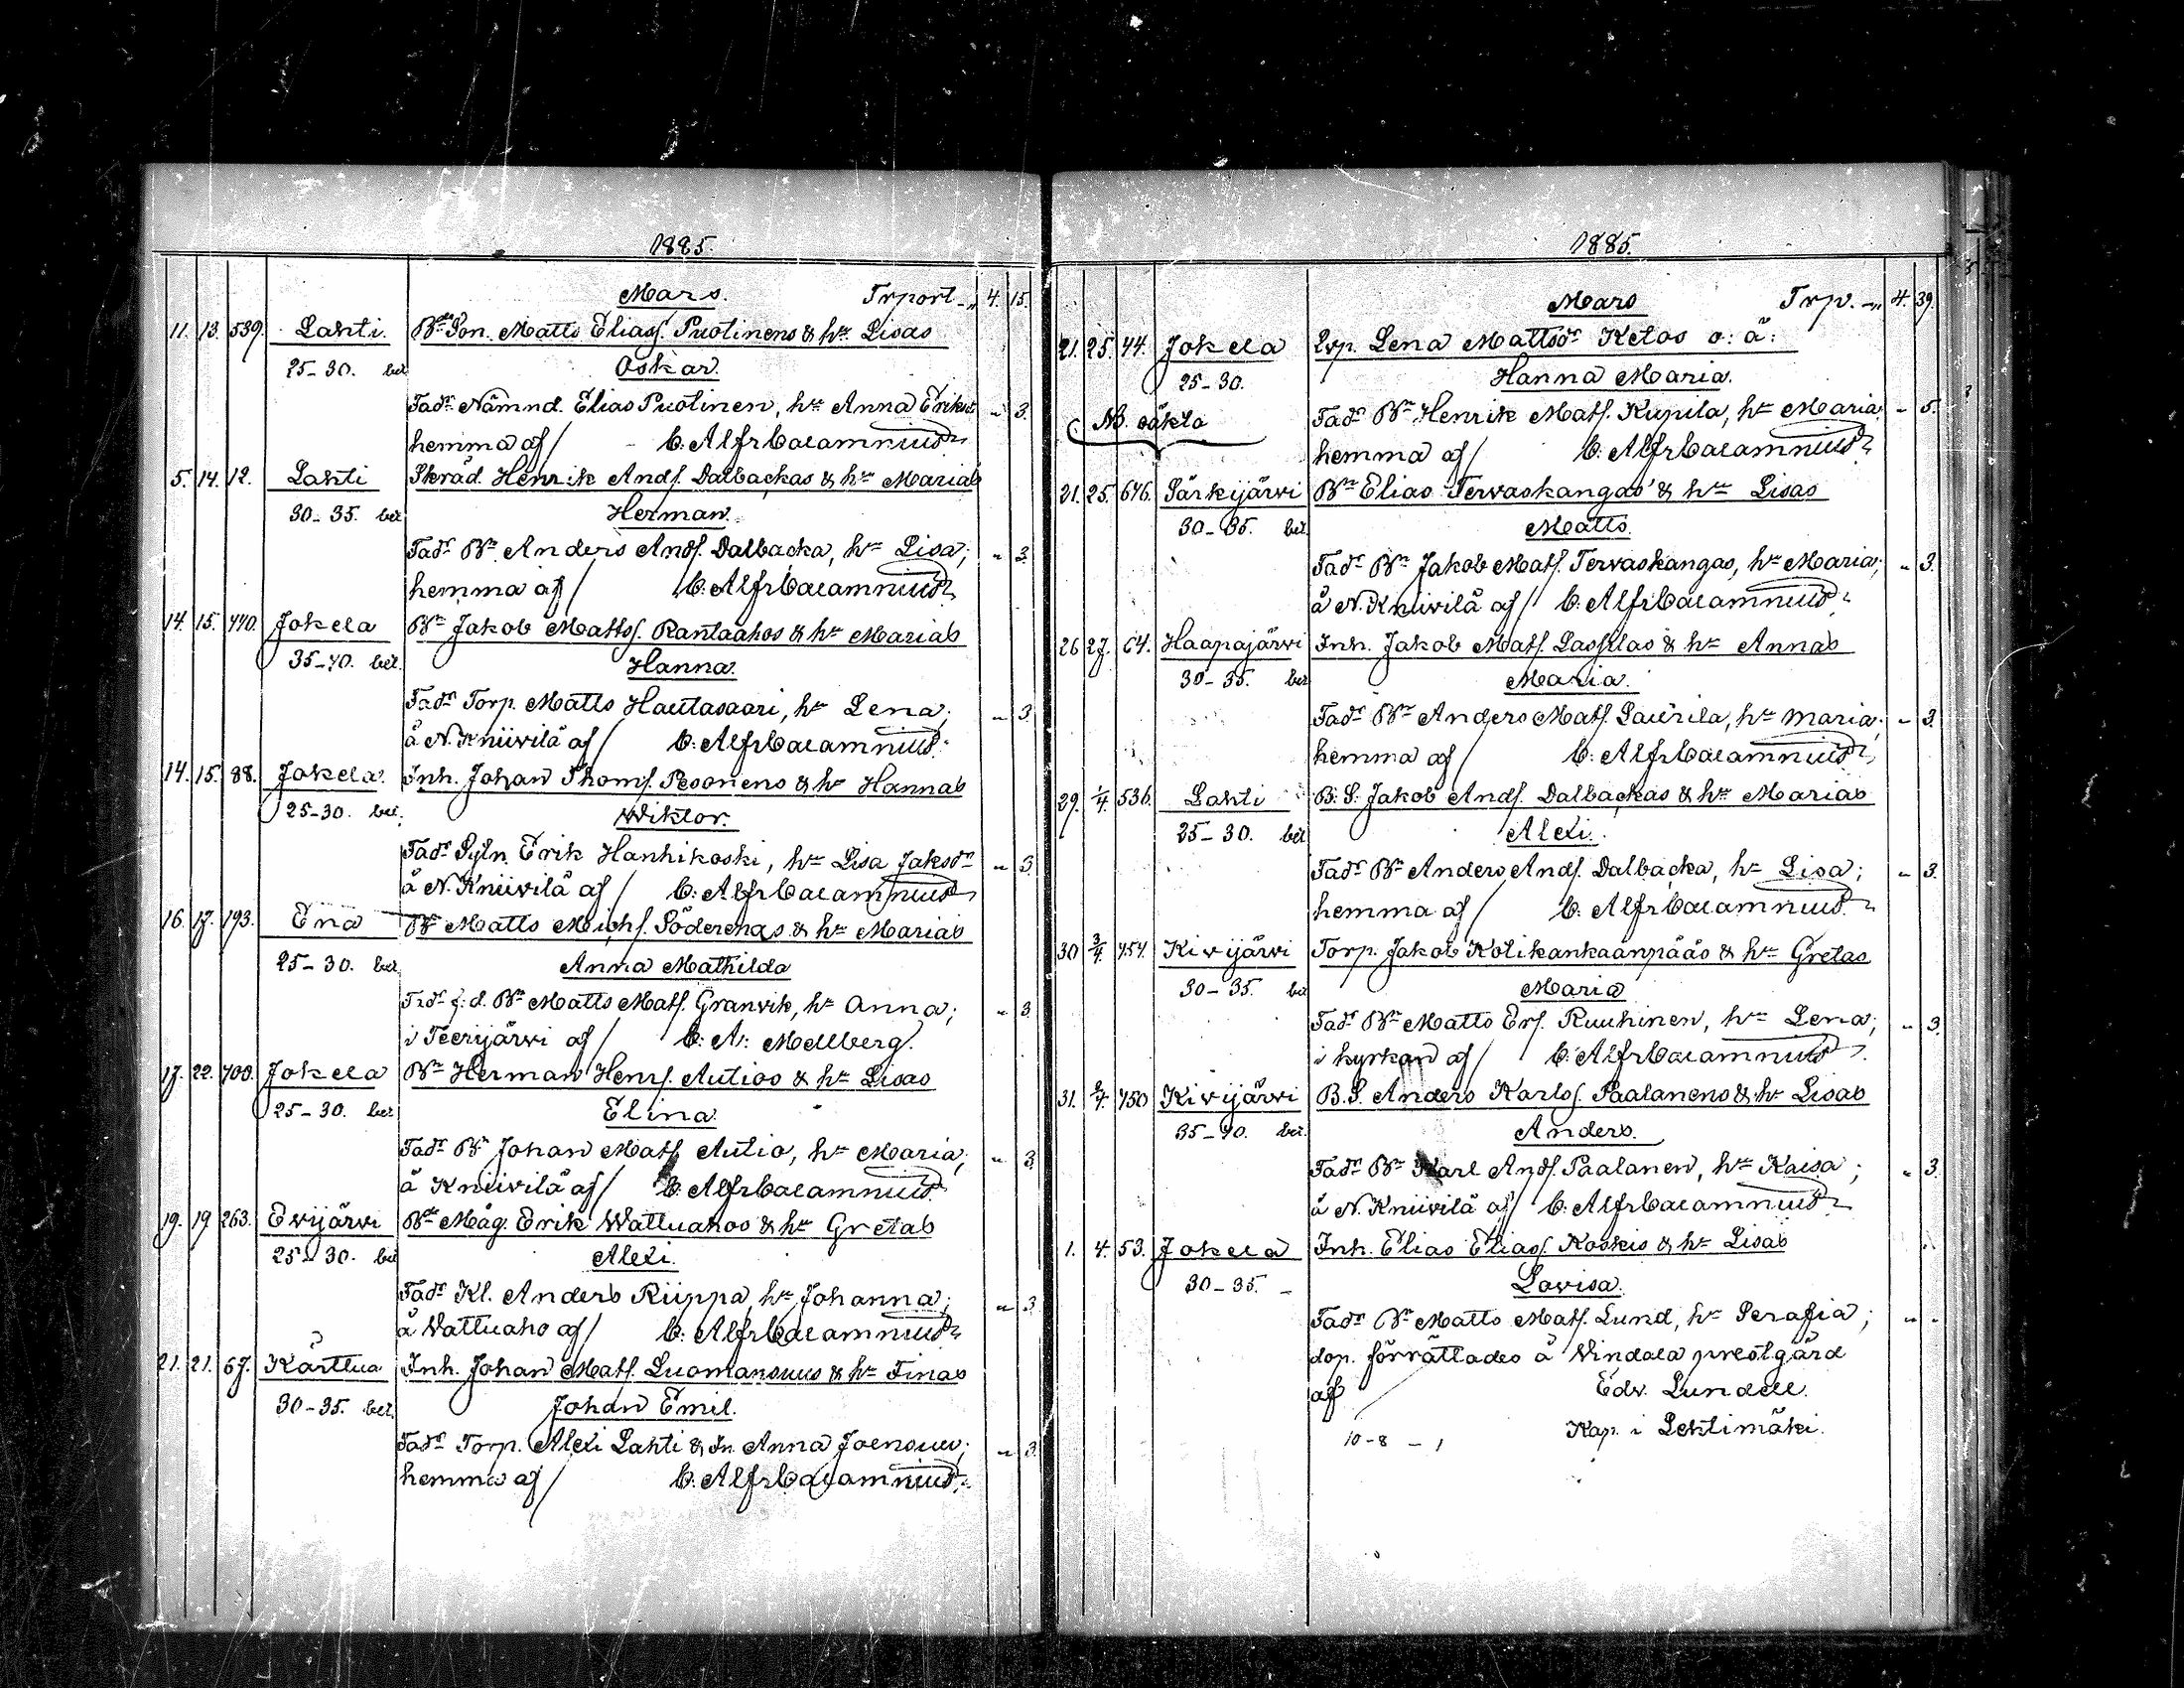 1885.
Mars. Trport - „ 4. 15.
11. 13. 539. Lahti. Bde Son. Matts Eliass. Puotinens & hu Lisas
25-30. bet. Oskar.
Fadr Nämnd. Elias Puotinen, hu Anna Eriksd. „ 3.
hemma af / C: Alfr Calamnius
5. 14. 12. Lahti Skräd. Henrik Ands. Dalbackas & hu Marias
30-35. bet. Herman.
Fadr Bn Anders Ands. Dalbacka, hu Lisa; „ 3.
hemma af / C: Alfr Calamnius
14. 15. 770. Jokela Bn Jakob Mattss. Rantaahos & hu Marias
35-40. bet. Hanna.
Fadr Torp. Matts Hautasaari, hu Lena; „ 3.
å N. Kniivilä af / C: Alfr Calamnius
14. 15. 88. Jokela. Inh. Johan Thoms. Pesonens & hu Hannas
25-30. bet. Wiktor.
Fadr Sytn. Erik Hanhikoski, hu Lisa Jaksdr „ 3.
å N. Kniivilä af / C: Alfr Calamnius
16. 17. 193. Ena Bn Matts Michs. Söderengas & hu Marias
25-30. bet. Anna Mathilda
Fadr f:d. Bn Matts Mats. Granvik, hu Anna; „ 3.
i Teerijärvi af / C: A: Mellberg.
17. 22. 700. Jokela Bn Herman Henrs. Autios & hu Lisas
25-30. bet. Elina
Fadr Bn Johan Mats. Autio, hu Maria; „ 3.
å Kniivilä af / C: Alfr Calamnius
19. 19 263. Evijärvi Bde Måg. Erik Wattuahos & hu Gretas
25-30. bet. Alexi.
Fadr Kl. Anders Riippa, hu Johanna; „ 3.
å Wattuaho af / C: Alfr Calamnius
21. 21. 67. Kärttua Inh. Johan Mats. Luomansuus & hu Finas
30-35. bet. Johan Emil.
Fadr Torp. Alexi Lahti & In. Anna Joensuu; „ 3.
hemma af / C: Alfr Calamnius
1885.
Mars Trp. - „ 4. 39.
21. 25. 44. Jokela Qvp. Lena Mattsdr Ketos o: ä:
25-30. Hanna Maria.
NB. oäkta Fadr Bn Henrik Mats. Kupila, hu Maria; „ 5.
hemma af / C: Alfr Calamnius
21. 25. 676. Särkijärvi Bn Elias Tervaskangas' & hu Lisas
30-35. bet. Matts.
Fadr Bn Jakob Mats. Tervaskangas, hu Maria; „ 3.
å N. Kniivilä af / C: Alfr Calamnius
26 27. 64. Haapajärvi Inh. Jakob Mats. Lassilas & hu Annas
30-35. bet Maria.
Fadr Bn Anders Mats. Laurila, hu Maria; „ 3.
hemma af / C: Alfr Calamnius
29. 1/4 536. Lahti B:S: Jakob Ands. Dalbackas & hu Marias
25-30. bet Alexi.
Fadr Bn Anders Ands. Dalbacka, hu Lisa; „ 3.
hemma af / C: Alfr Calamnius
30 3/4 757. Kivijärvi Torp. Jakob Kotikankaanpääs & hu Gretas
30-35. bet Maria
Fadr Bn Matts Ers. Ruuhinen, hu Lena; „ 3.
i kyrkan af / C: Alfr Calamnius
31. 2/4. 750 Kivijärvi B.S. Anders Karls. Paalanens & hu Lisas
35-40. bet. Anders.
Fadr Bn Karl Ands. Paalanen, hu Kaisa; „ 3.
å N. Kniivilä af / C: Alfr Calamnius
1. 4. 53. Jokela Inh. Elias Eliass. Koskis & hu Lisas
30-35. - Lovisa.
Fadr Bn Matts Mats. Lund, hu Serafia; „ „
dop. förrättades å Vindala prestgård
af / Edv. Lundell.
10-8 - 1 Kap. i Lehtimäki.